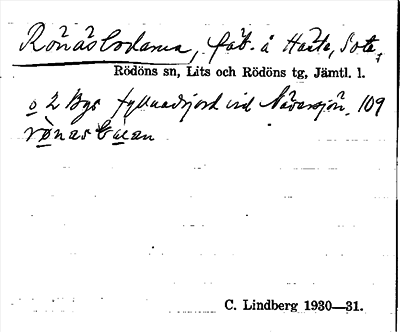 Rönäsbodarna, fäb. å Hästa, Sota,
Rödöns sn, Lits och Rödöns tg, Jämtl. l.
o 2 Bys fyllnadsjord vid Näversjön. 109
C. Lindberg 1930—31.